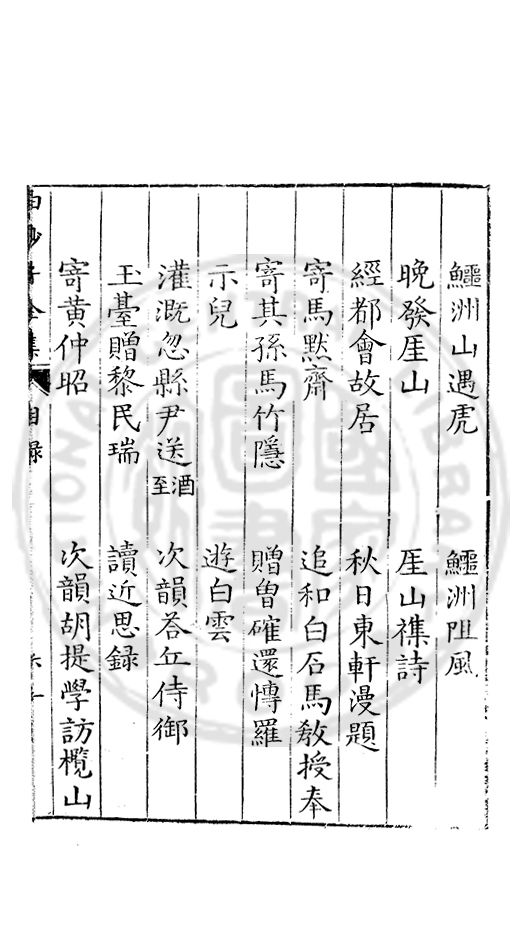 鱷洲山遇虎　鱷洲阻風
晚發厓山　厓山襍詩
經都會故居　秋日東軒漫題
寄馬默齋　追和白石馬敎授奉
寄其孫馬竹隱　贈曾確還博羅
示兒　遊白雲
灌溉忽縣尹送酒至　次韻荅丘侍御
玉臺贈黎民瑞　讀近思錄
寄黃仲昭　次韻胡提學訪欖山
白沙子全集　目錄